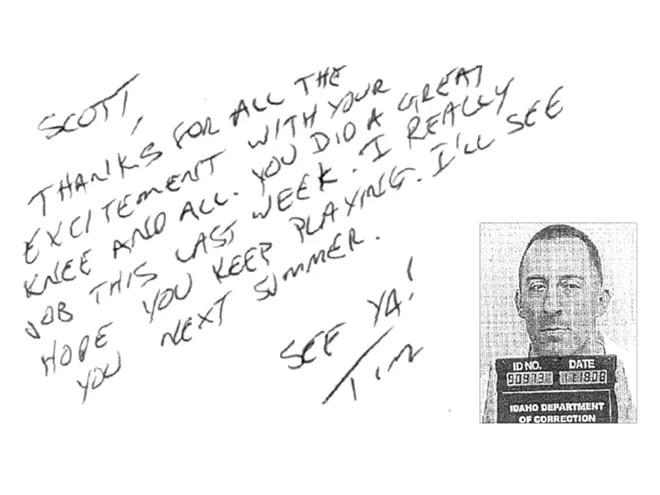 SCOTT,
THANKS FOR ALL THE
EXCITEMENT WITH YOUR
KNEE AND ALL. YOU DID A GREAT
JOB THIS LAST WEEK. I REALLY
HOPE YOU KEEP PLAYING. I'LL SEE
YOU NEXT SUMMER.
SEE YA!
TIM
ID NO. DATE
IDAHO DEPARTMENT
OF CORRECTION